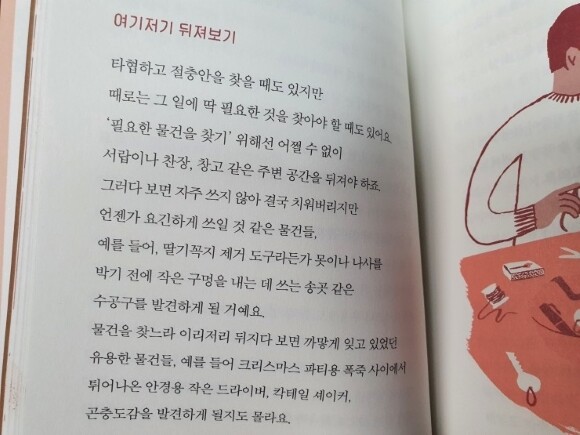 여기저기 뒤져보기
타협하고 절충안을 찾을 때도 있지만
때로는 그 일에 딱 필요한 것을 찾아야 할 때도 있어요.
‘필요한 물건을 찾기’ 위해선 어쩔 수 없이
서랍이나 찬장, 창고 같은 주변 공간을 뒤져야 하죠.
그러다 보면 자주 쓰지 않아 결국 치워버리지만
언젠가 요긴하게 쓰일 것 같은 물건들,
예를 들어, 딸기꼭지 제거 도구라든가 못이나 나사를
박기 전에 작은 구멍을 내는 데 쓰는 송곳 같은
수공구를 발견하게 될 거예요.
물건을 찾느라 이리저리 뒤지다 보면 까맣게 잊고 있었던
유용한 물건들, 예를 들어 크리스마스 파티용 폭죽 사이에서
튀어나온 안경용 작은 드라이버, 칵테일 셰이커,
곤충도감을 발견하게 될지도 몰라요.